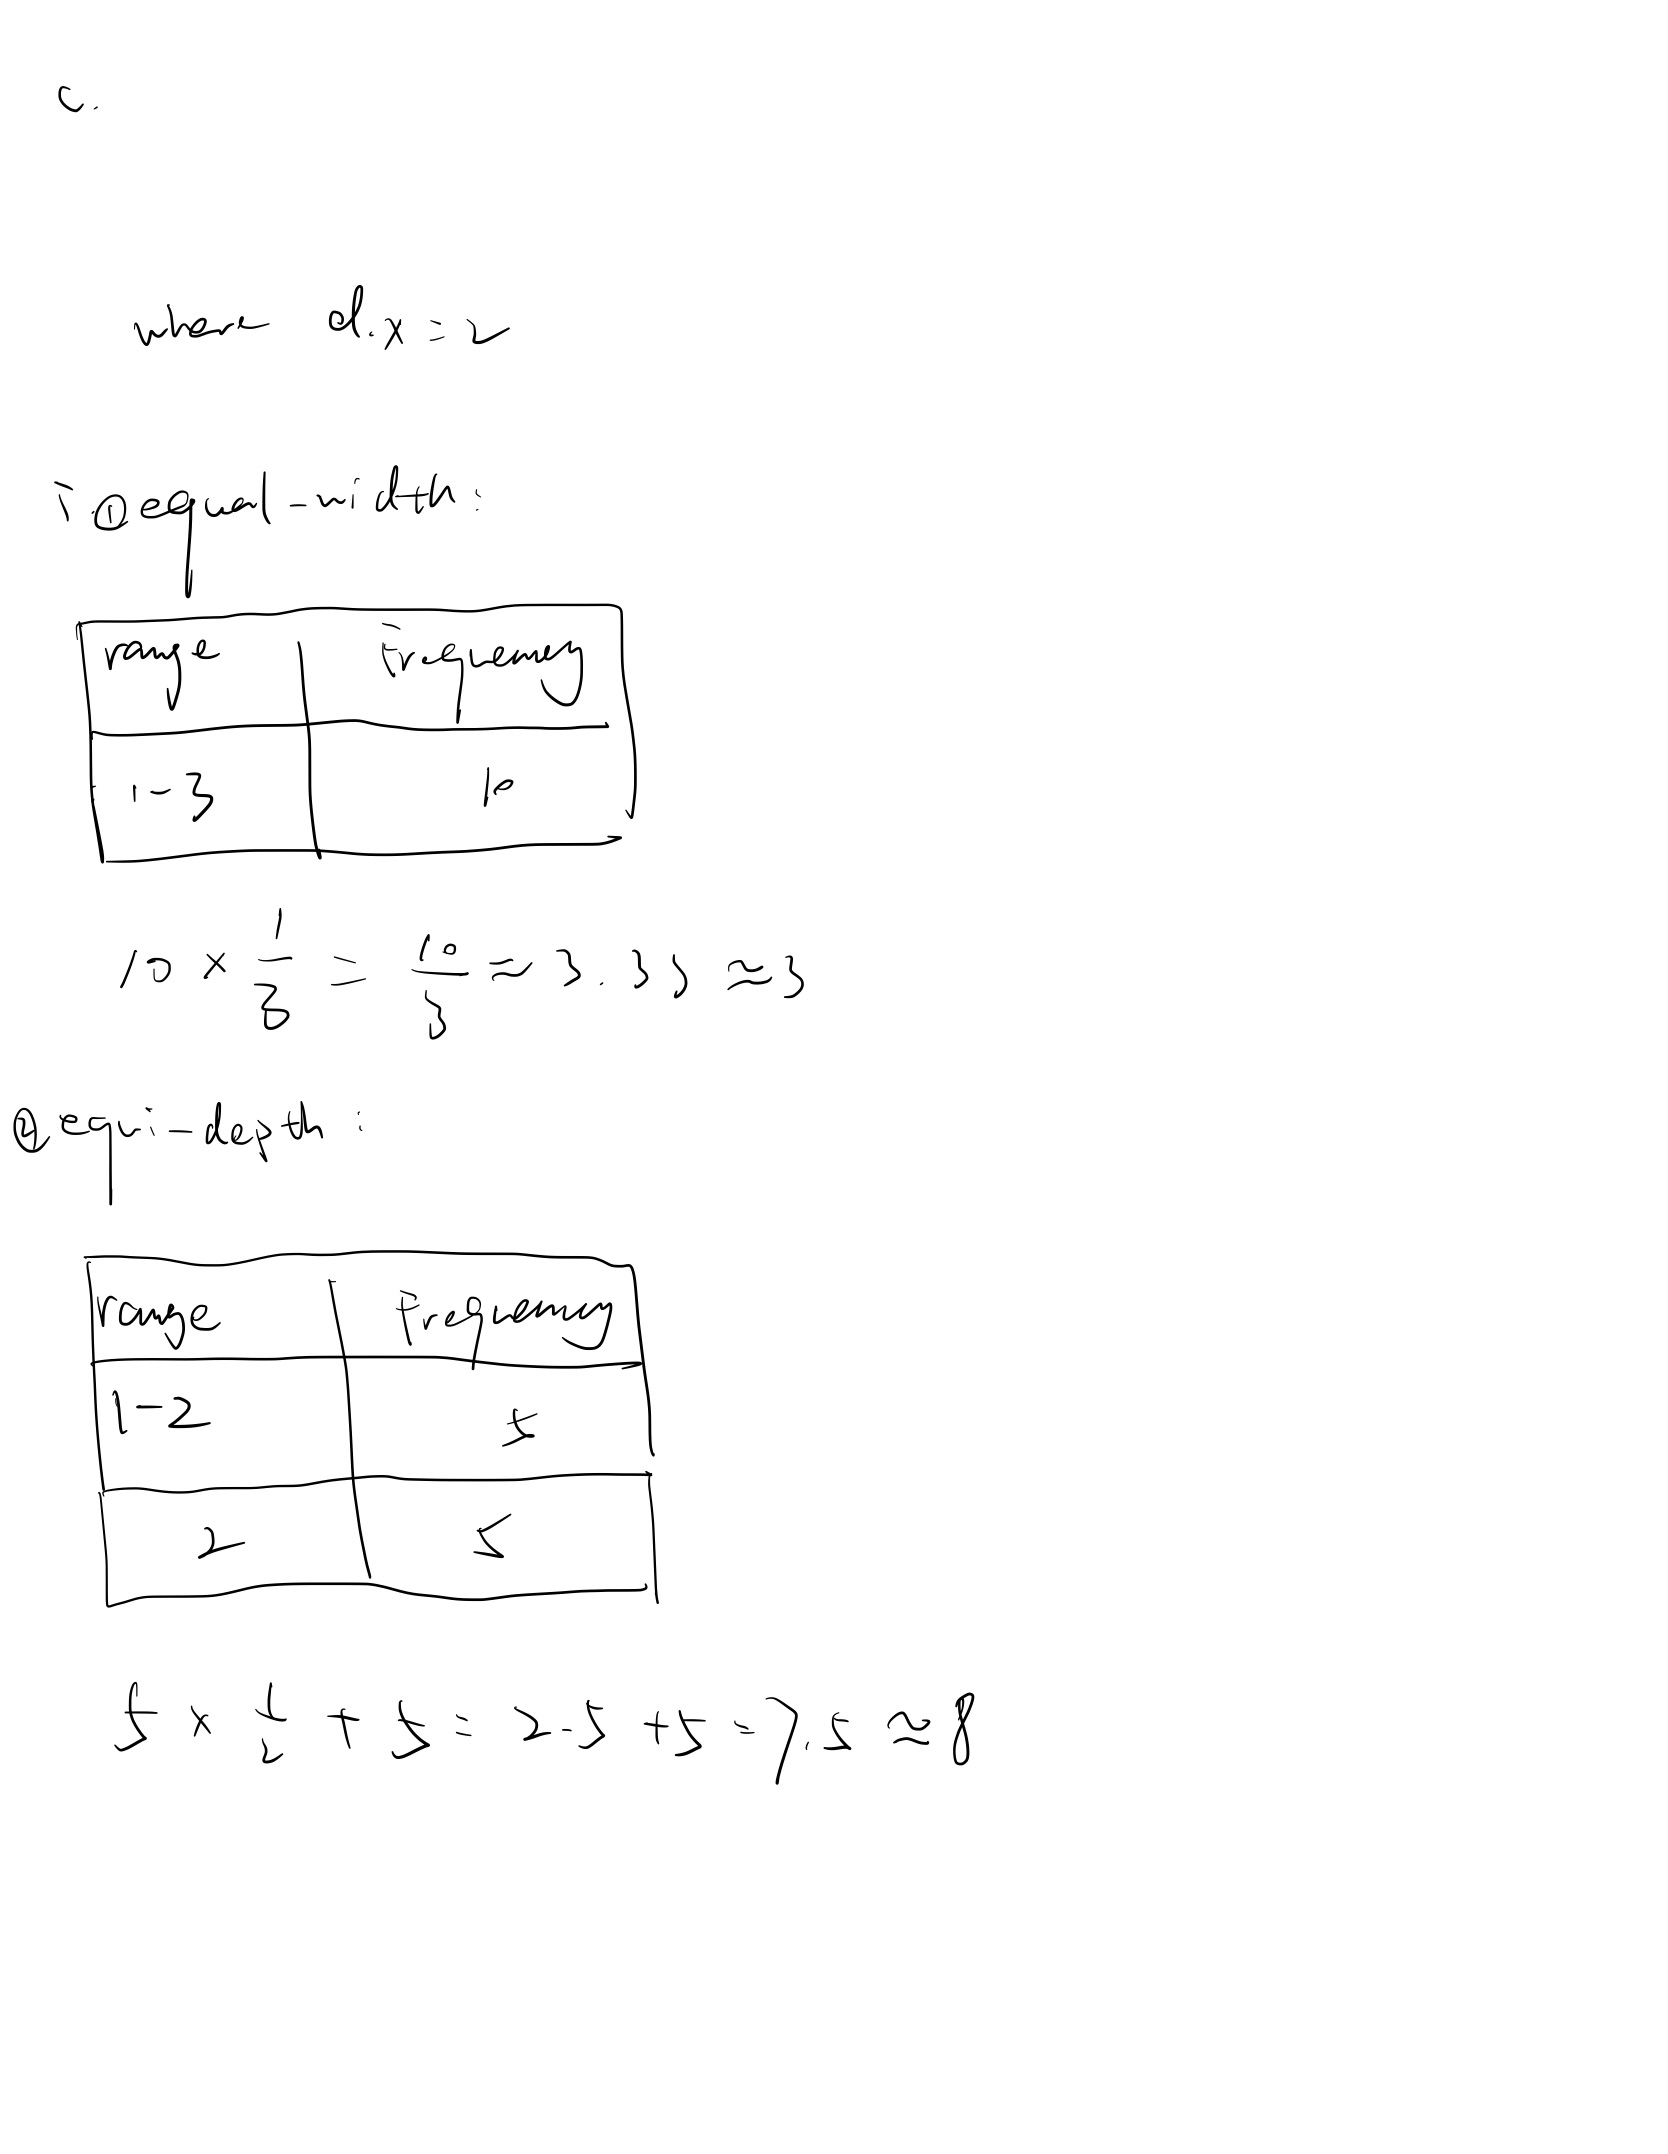 c.
where d.x = 2
i. ① equal-width:
range Frequency
1-3 10
10 × 1/3 = 10/3 ≈ 3.33 ≈ 3
② equi-depth:
range Frequency
1-2 5
2 5
5 × 1/2 + 5 = 2.5 + 5 = 7.5 ≈ 8